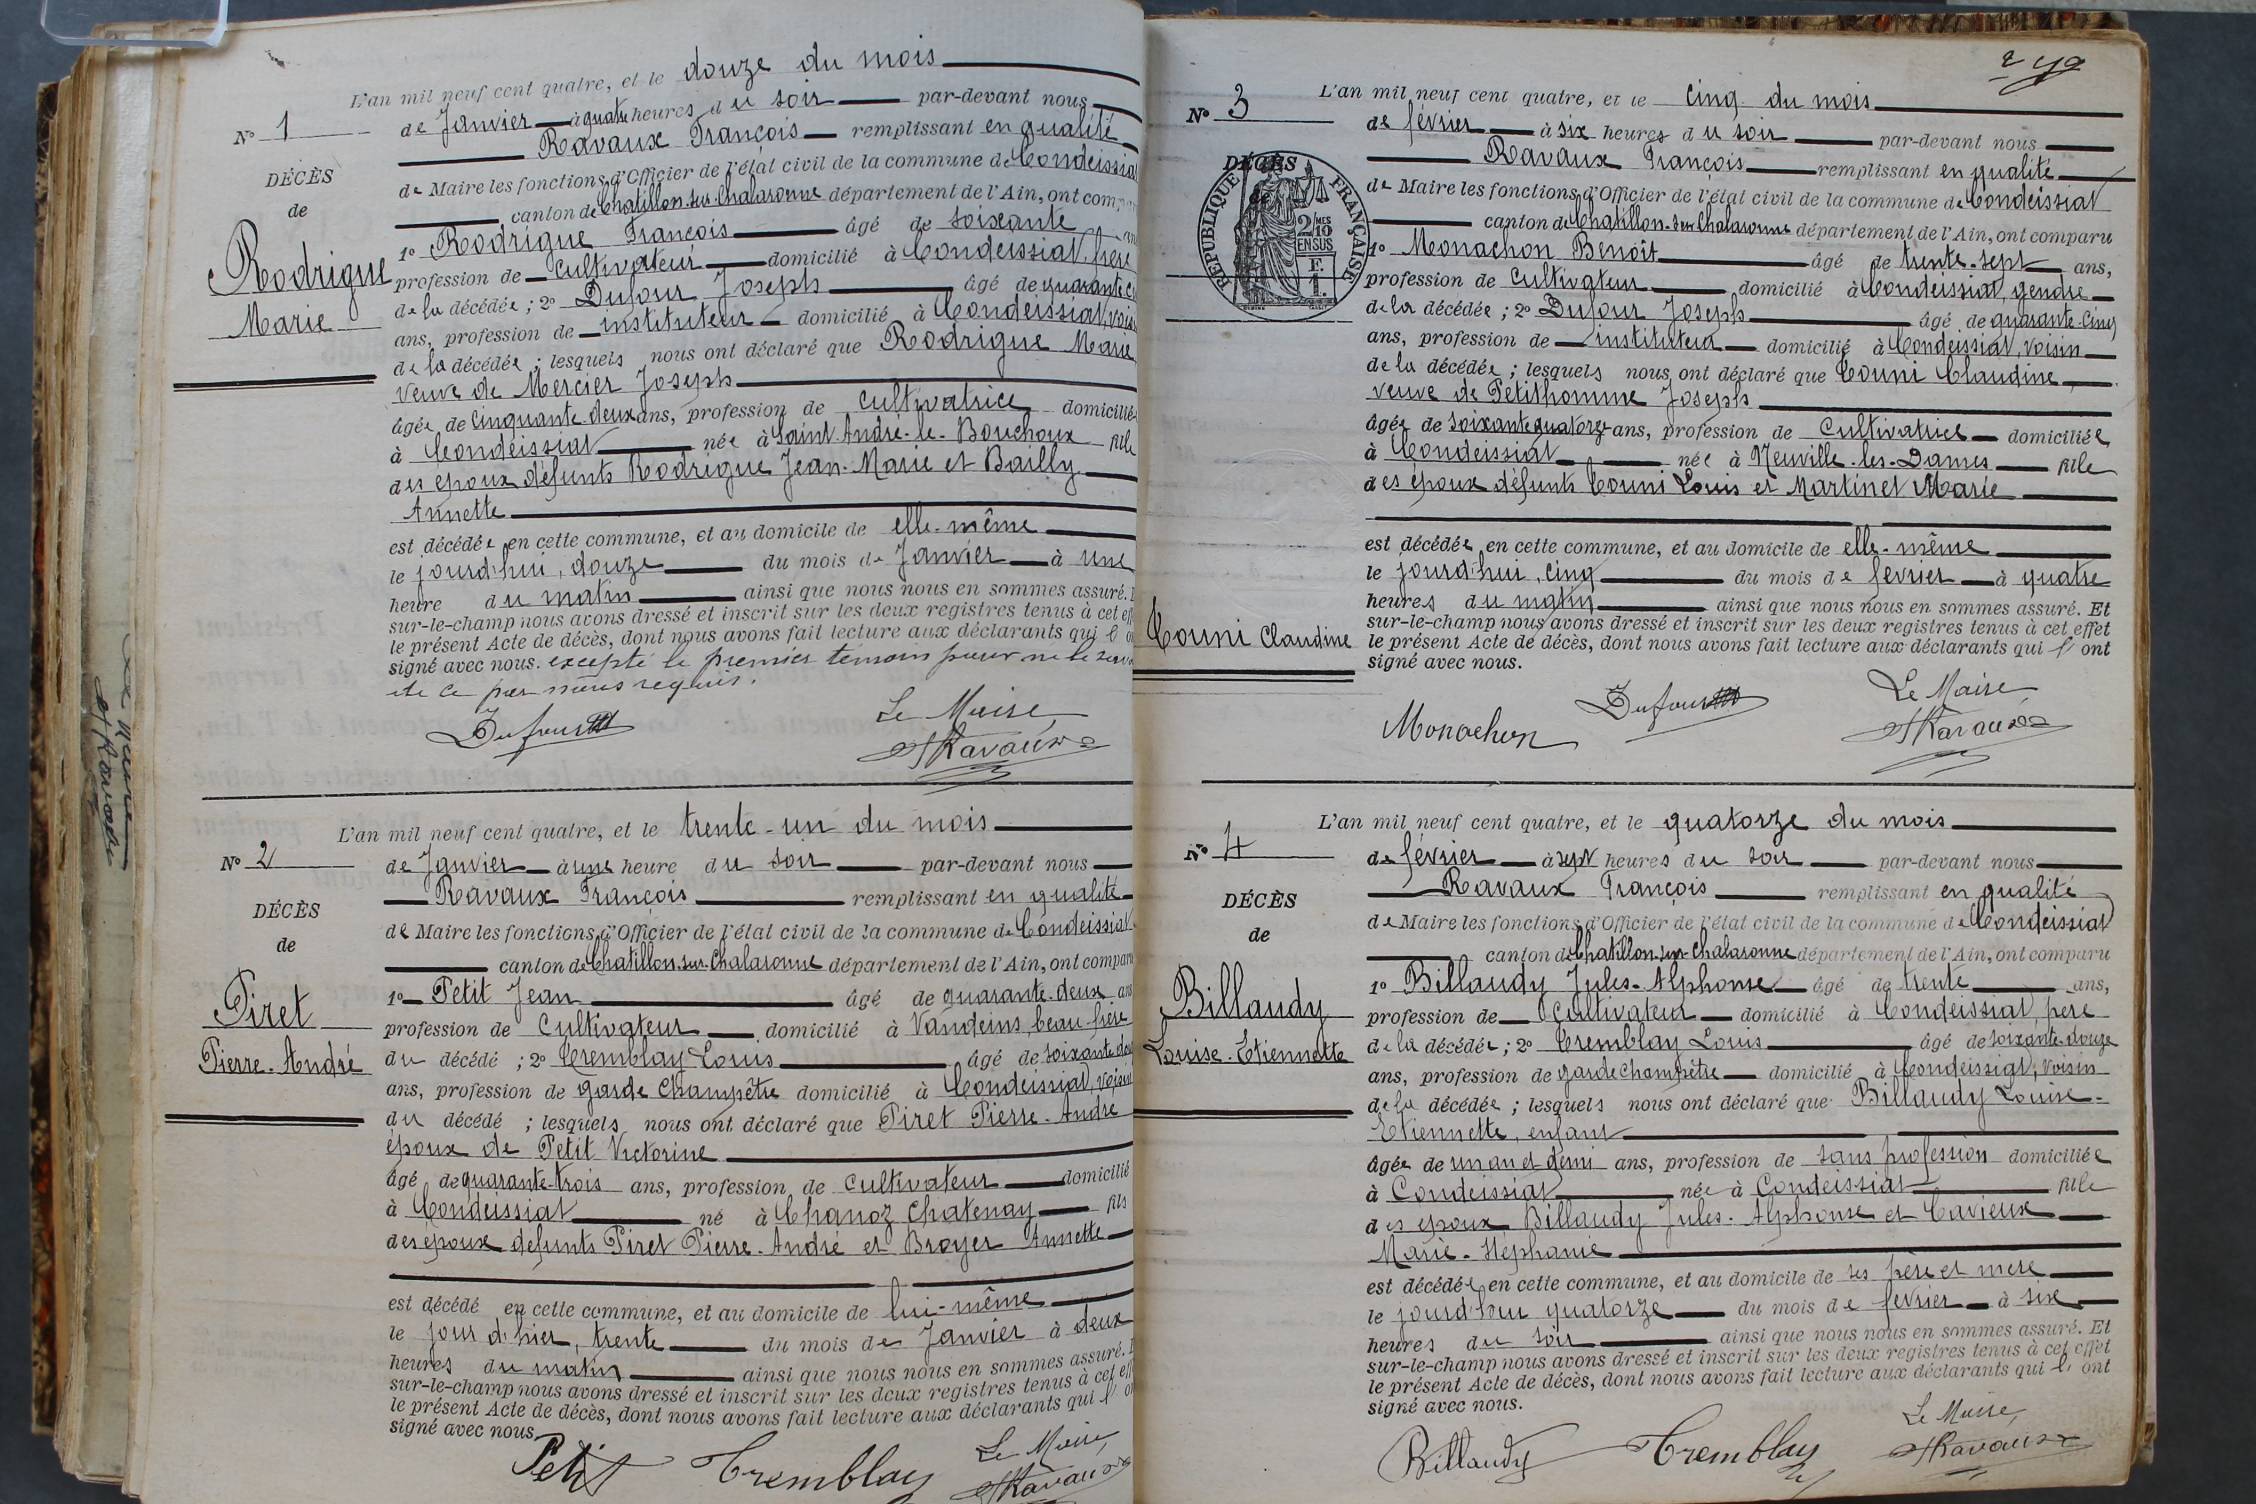 L'an mil neuf cent quatre, et le douze du mois
N° 1
de Janvier à quatre heures du soir par-devant nous
Ravaux François remplissant en qualité
DÉCÈS
de
Rodrigue
Marie
de Maire les fonctions d'Officier de l'état civil de la commune de Condeissiat
canton de Chatillon-sur-Chalaronne département de l'Ain, ont comparu
1° Rodrigue François âgé de soixante ans
profession de cultivateur domicilié à Condeissiat, frère
de la décédée ; 2° Dufour Joseph âgé de quarante
ans, profession de instituteur domicilié à Condeissiat, voisin
de la décédée ; lesquels nous ont déclaré que Rodrigue Marie
veuve de Mercier Joseph
âgée de cinquante-deux ans, profession de cultivatrice domiciliée
à Condeissiat née à Saint-André-le-Bouchoux fille
des époux défunts Rodrigue Jean-Marie et Bailly
Annette
est décédée en cette commune, et au domicile de elle-même
le jourd'hui, douze du mois de Janvier à une
heure du matin ainsi que nous nous en sommes assuré.
sur-le-champ nous avons dressé et inscrit sur les deux registres tenus à cet eff
le présent Acte de décès, dont nous avons fait lecture aux déclarants qui l'
signé avec nous. excepté le premier témoin pour ne le savoir
de ce par nous requis.
Dufour
Le Maire,
Ravaux
L'an mil neuf cent quatre, et le trente-un du mois
N° 2
de Janvier à une heure du soir par-devant nous
Ravaux François remplissant en qualité
DÉCÈS
de
Piret
Pierre-André
de Maire les fonctions d'Officier de l'état civil de la commune de Condeissiat
canton de Chatillon-sur-Chalaronne département de l'Ain, ont comparu
1° Petit Jean âgé de quarante-deux ans
profession de cultivateur domicilié à Vandeins, beau-frère
du décédé ; 2° Tremblay Louis âgé de soixante-dou
ans, profession de garde champêtre domicilié à Condeissiat, voisin
du décédé ; lesquels nous ont déclaré que Piret Pierre-André
époux de Petit Victorine
âgé de quarante-trois ans, profession de cultivateur domicilié
à Condeissiat né à Chanoz Chatenay fils
des époux défunts Piret Pierre-André et Broyer Annette
est décédé en cette commune, et au domicile de lui-même
le jour d'hier, trente du mois de Janvier à deux
heures du matin ainsi que nous nous en sommes assuré.
sur-le-champ nous avons dressé et inscrit sur les deux registres tenus à cet eff
le présent Acte de décès, dont nous avons fait lecture aux déclarants qui l'
signé avec nous.
Petit
Tremblay
Le Maire,
Ravaux
L'an mil neuf cent quatre, et le cinq du mois
N° 3
de février à six heures du soir par-devant nous
Ravaux François remplissant en qualité
DÉCÈS
de
RÉPUBLIQUE FRANÇAISE
2/10 MES
EN SUS
F.
1.
Couni Claudine
de Maire les fonctions d'Officier de l'état civil de la commune de Condeissiat
canton de Chatillon-sur-Chalaronne département de l'Ain, ont comparu
1° Monachon Benoît âgé de trente-sept ans,
profession de cultivateur domicilié à Condeissiat, gendre
de la décédée ; 2° Dufour Joseph âgé de quarante-cinq
ans, profession de instituteur domicilié à Condeissiat, voisin
de la décédée ; lesquels nous ont déclaré que Couni Claudine,
veuve de Petithomme Joseph
âgée de soixante quatorze ans, profession de cultivatrice domiciliée
à Condeissiat née à Neuville-les-Dames fille
des époux défunts Couni Louis et Martinet Marie
est décédée en cette commune, et au domicile de elle-même
le jourd'hui, cinq du mois de février à quatre
heures du matin ainsi que nous nous en sommes assuré. Et
sur-le-champ nous avons dressé et inscrit sur les deux registres tenus à cet effet
le présent Acte de décès, dont nous avons fait lecture aux déclarants qui l'ont
signé avec nous.
Monachon
Dufour
Le Maire,
Ravaux
L'an mil neuf cent quatre, et le quatorze du mois
N° 4
de février à sept heures du soir par-devant nous
Ravaux François remplissant en qualité
DÉCÈS
de
Billaudy
Louise-Etiennette
de Maire les fonctions d'Officier de l'état civil de la commune de Condeissiat
canton de Chatillon-sur-Chalaronne département de l'Ain, ont comparu
1° Billaudy Jules-Alphonse âgé de trente ans,
profession de cultivateur domicilié à Condeissiat, père
de la décédée ; 2° Tremblay Louis âgé de soixante-douze
ans, profession de garde champêtre domicilié à Condeissiat, voisin
de la décédée ; lesquels nous ont déclaré que Billaudy Louise-
Etiennette, enfant
âgée de un an et demi ans, profession de sans profession domiciliée
à Condeissiat née à Condeissiat fille
des époux Billaudy Jules-Alphonse et Cavieux
Marie-Stéphanie
est décédée en cette commune, et au domicile de ses père et mère
le jourd'hui quatorze du mois de février à six
heures du soir ainsi que nous nous en sommes assuré. Et
sur-le-champ nous avons dressé et inscrit sur les deux registres tenus à cet effet
le présent Acte de décès, dont nous avons fait lecture aux déclarants qui l'ont
signé avec nous.
Billaudy
Tremblay
Le Maire,
Ravaux